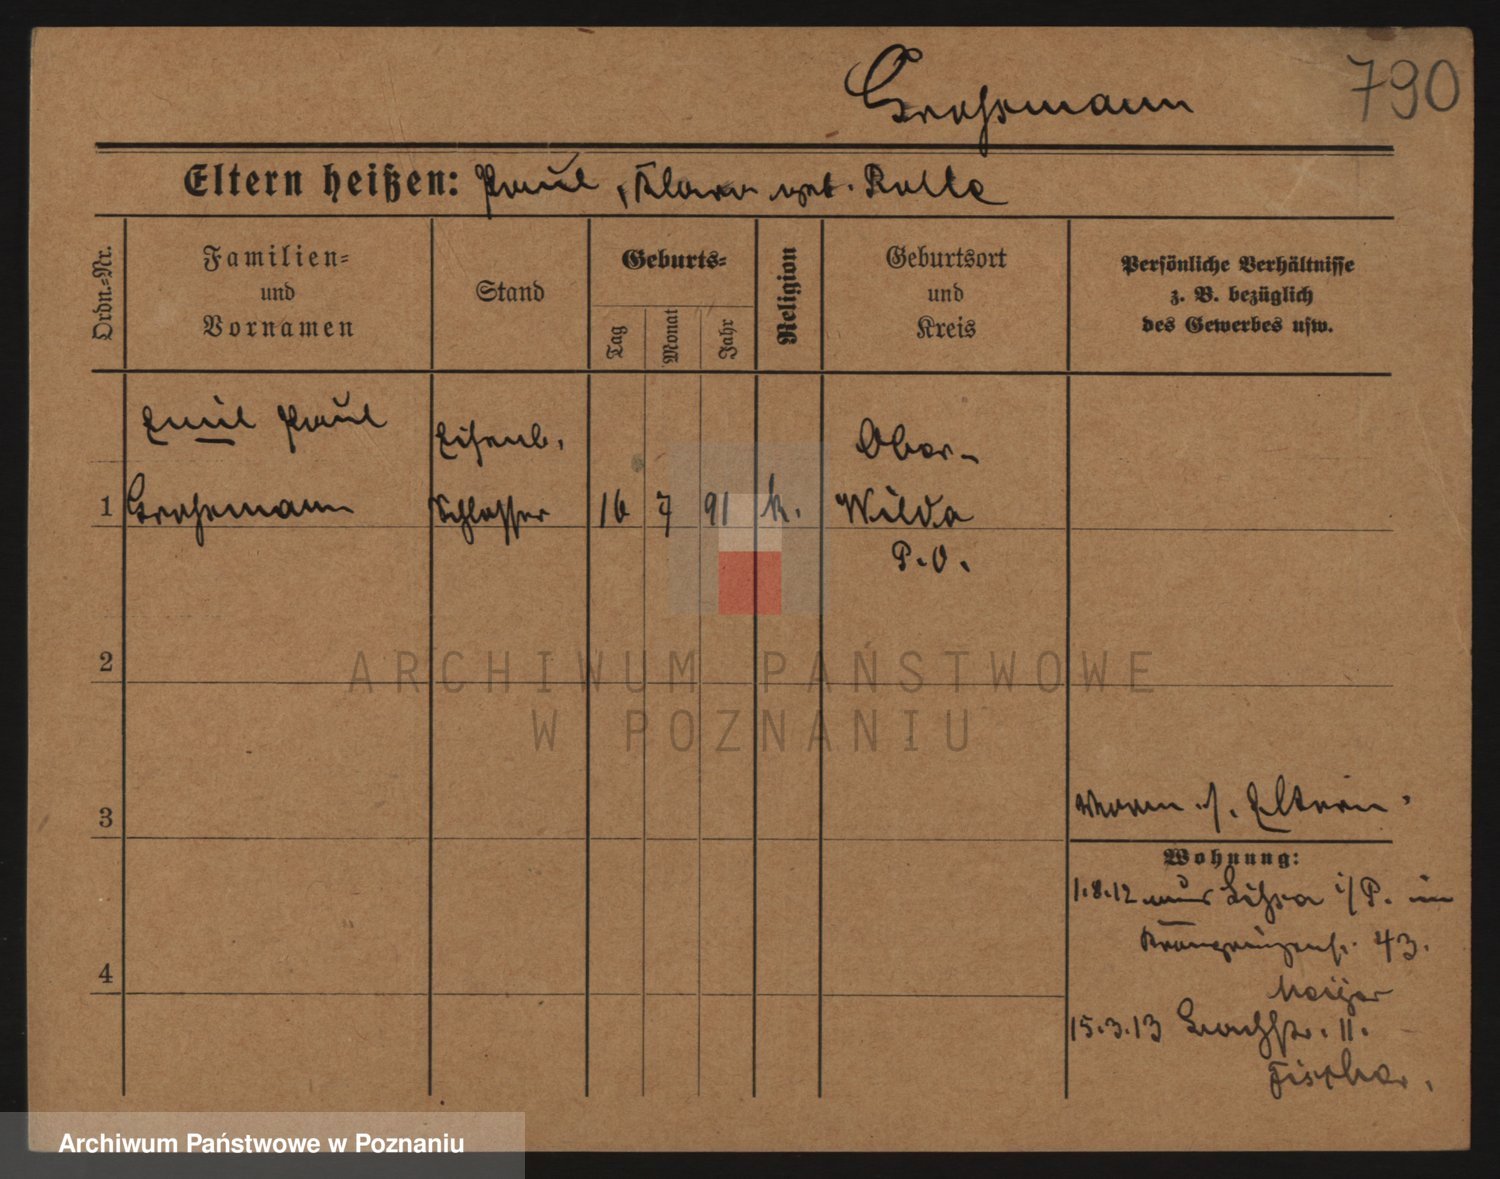 790
Grossmann
Eltern heißen: Paul, Klara geb. Rolle
Ordn.-Nr.
Familien-
und
Vornamen
Stand
Geburts-
Tag
Monat
Jahr
Religion
Geburtsort
und
Kreis
Persönliche Verhältnisse
z. B. bezüglich
des Gewerbes usw.
Emil Paul
Eisenb.
Ober-
1 Grossmann Schlosser 16 7 91 k. Wilda
P.O.
2
ARCHIWUM PAŃSTWOWE
W POZNANIU
3
s. Eltern
Wohnung:
1.8.12 i/P. in
43.
4
Meÿer
15.3.13 11.
Fischer.
Archiwum Państwowe w Poznaniu